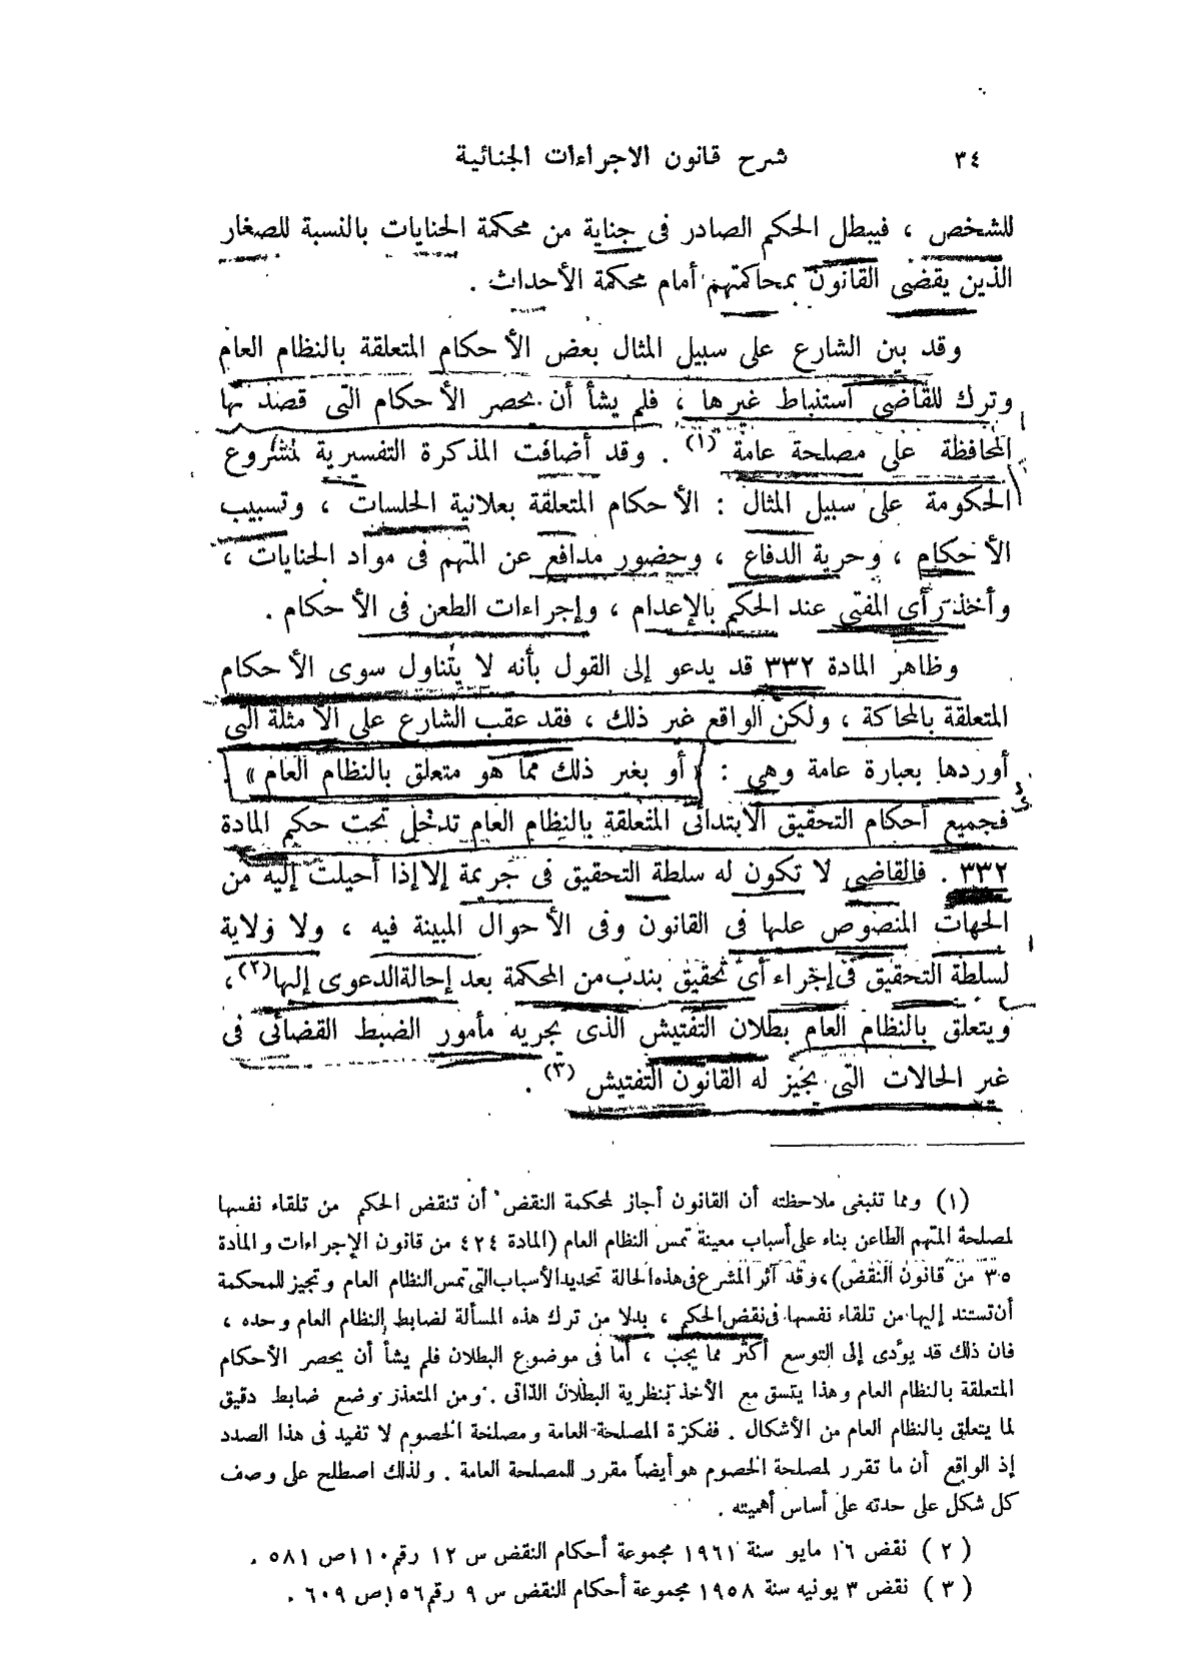 ٣٤
شرح قانون الاجراءات الجنائية
للشخص ، فيبطل الحكم الصادر فى جناية من محكمة الجنايات بالنسبة للصغار
الذين يقضى القانون بمحاكمتهم أمام محكمة الأحداث .
وقد بين الشارع على سبيل المثال بعض الأحكام المتعلقة بالنظام العام
وترك للقاضى استنباط غيرها ، فلم يشأ أن يحصر الأحكام التى قصد بها
المحافظة على مصلحة عامة (١) . وقد أضافت المذكرة التفسيرية لمشروع
الحكومة على سبيل المثال : الأحكام المتعلقة بعلانية الجلسات ، وتسبيب
الأحكام ، وحرية الدفاع ، وحضور مدافع عن المتهم فى مواد الجنايات ،
وأخذ رأى المفتى عند الحكم بالإعدام ، وإجراءات الطعن فى الأحكام .
وظاهر المادة ٣٣٢ قد يدعو إلى القول بأنه لا يتناول سوى الأحكام
المتعلقة بالمحاكمة ، ولكن الواقع غير ذلك ، فقد عقب الشارع على الأمثلة التى
أوردها بعبارة عامة وهى : « أو بغير ذلك مما هو متعلق بالنظام العام » .
فجميع أحكام التحقيق الابتدائى المتعلقة بالنظام العام تدخل تحت حكم المادة
٣٣٢ . فالقاضى لا تكون له سلطة التحقيق فى جريمة إلا إذا أحيلت إليه من
الجهات المنصوص عليها فى القانون وفى الأحوال المبينة فيه ، ولا ولاية
لسلطة التحقيق فى إجراء أى تحقيق بندب من المحكمة بعد إحالة الدعوى إليها (٢) ،
ويتعلق بالنظام العام بطلان التفتيش الذى يجريه مأمور الضبط القضائى فى
غير الحالات التى يجيز له القانون التفتيش (٣) .
(١) ومما تنبغى ملاحظته أن القانون أجاز لمحكمة النقض أن تنقض الحكم من تلقاء نفسها
لمصلحة المتهم الطاعن بناء على أسباب معينة تمس النظام العام (المادة ٤٢٤ من قانون الإجراءات والمادة
٣٥ من قانون النقض) ، وقد آثر المشرع فى هذه الحالة تحديد الأسباب التى تمس النظام العام وتجيز للمحكمة
أن تستند إليها من تلقاء نفسها فى نقض الحكم ، بدلا من ترك هذه المسألة لضابط النظام العام وحده ،
فان ذلك قد يؤدى إلى التوسع أكثر مما يجب ، أما فى موضوع البطلان فلم يشأ أن يحصر الأحكام
المتعلقة بالنظام العام وهذا يتسق مع الأخذ بنظرية البطلان الذاتى . ومن المتعذر وضع ضابط دقيق
لما يتعلق بالنظام العام من الأشكال . ففكرة المصلحة العامة ومصلحة الخصوم لا تفيد فى هذا الصدد
إذ الواقع أن ما تقرر لمصلحة الخصوم هو أيضاً مقرر للمصلحة العامة . ولذلك اصطلح على وصف
كل شكل على حدته على أساس أهميته .
( ٢ ) نقض ١٦ مايو سنة ١٩٦١ مجموعة أحكام النقض س ١٢ رقم ١١٠ ص ٥٨١ .
( ٣ ) نقض ٣ يونيه سنة ١٩٥٨ مجموعة أحكام النقض س ٩ رقم ١٥٦ ص ٦٠٩ .